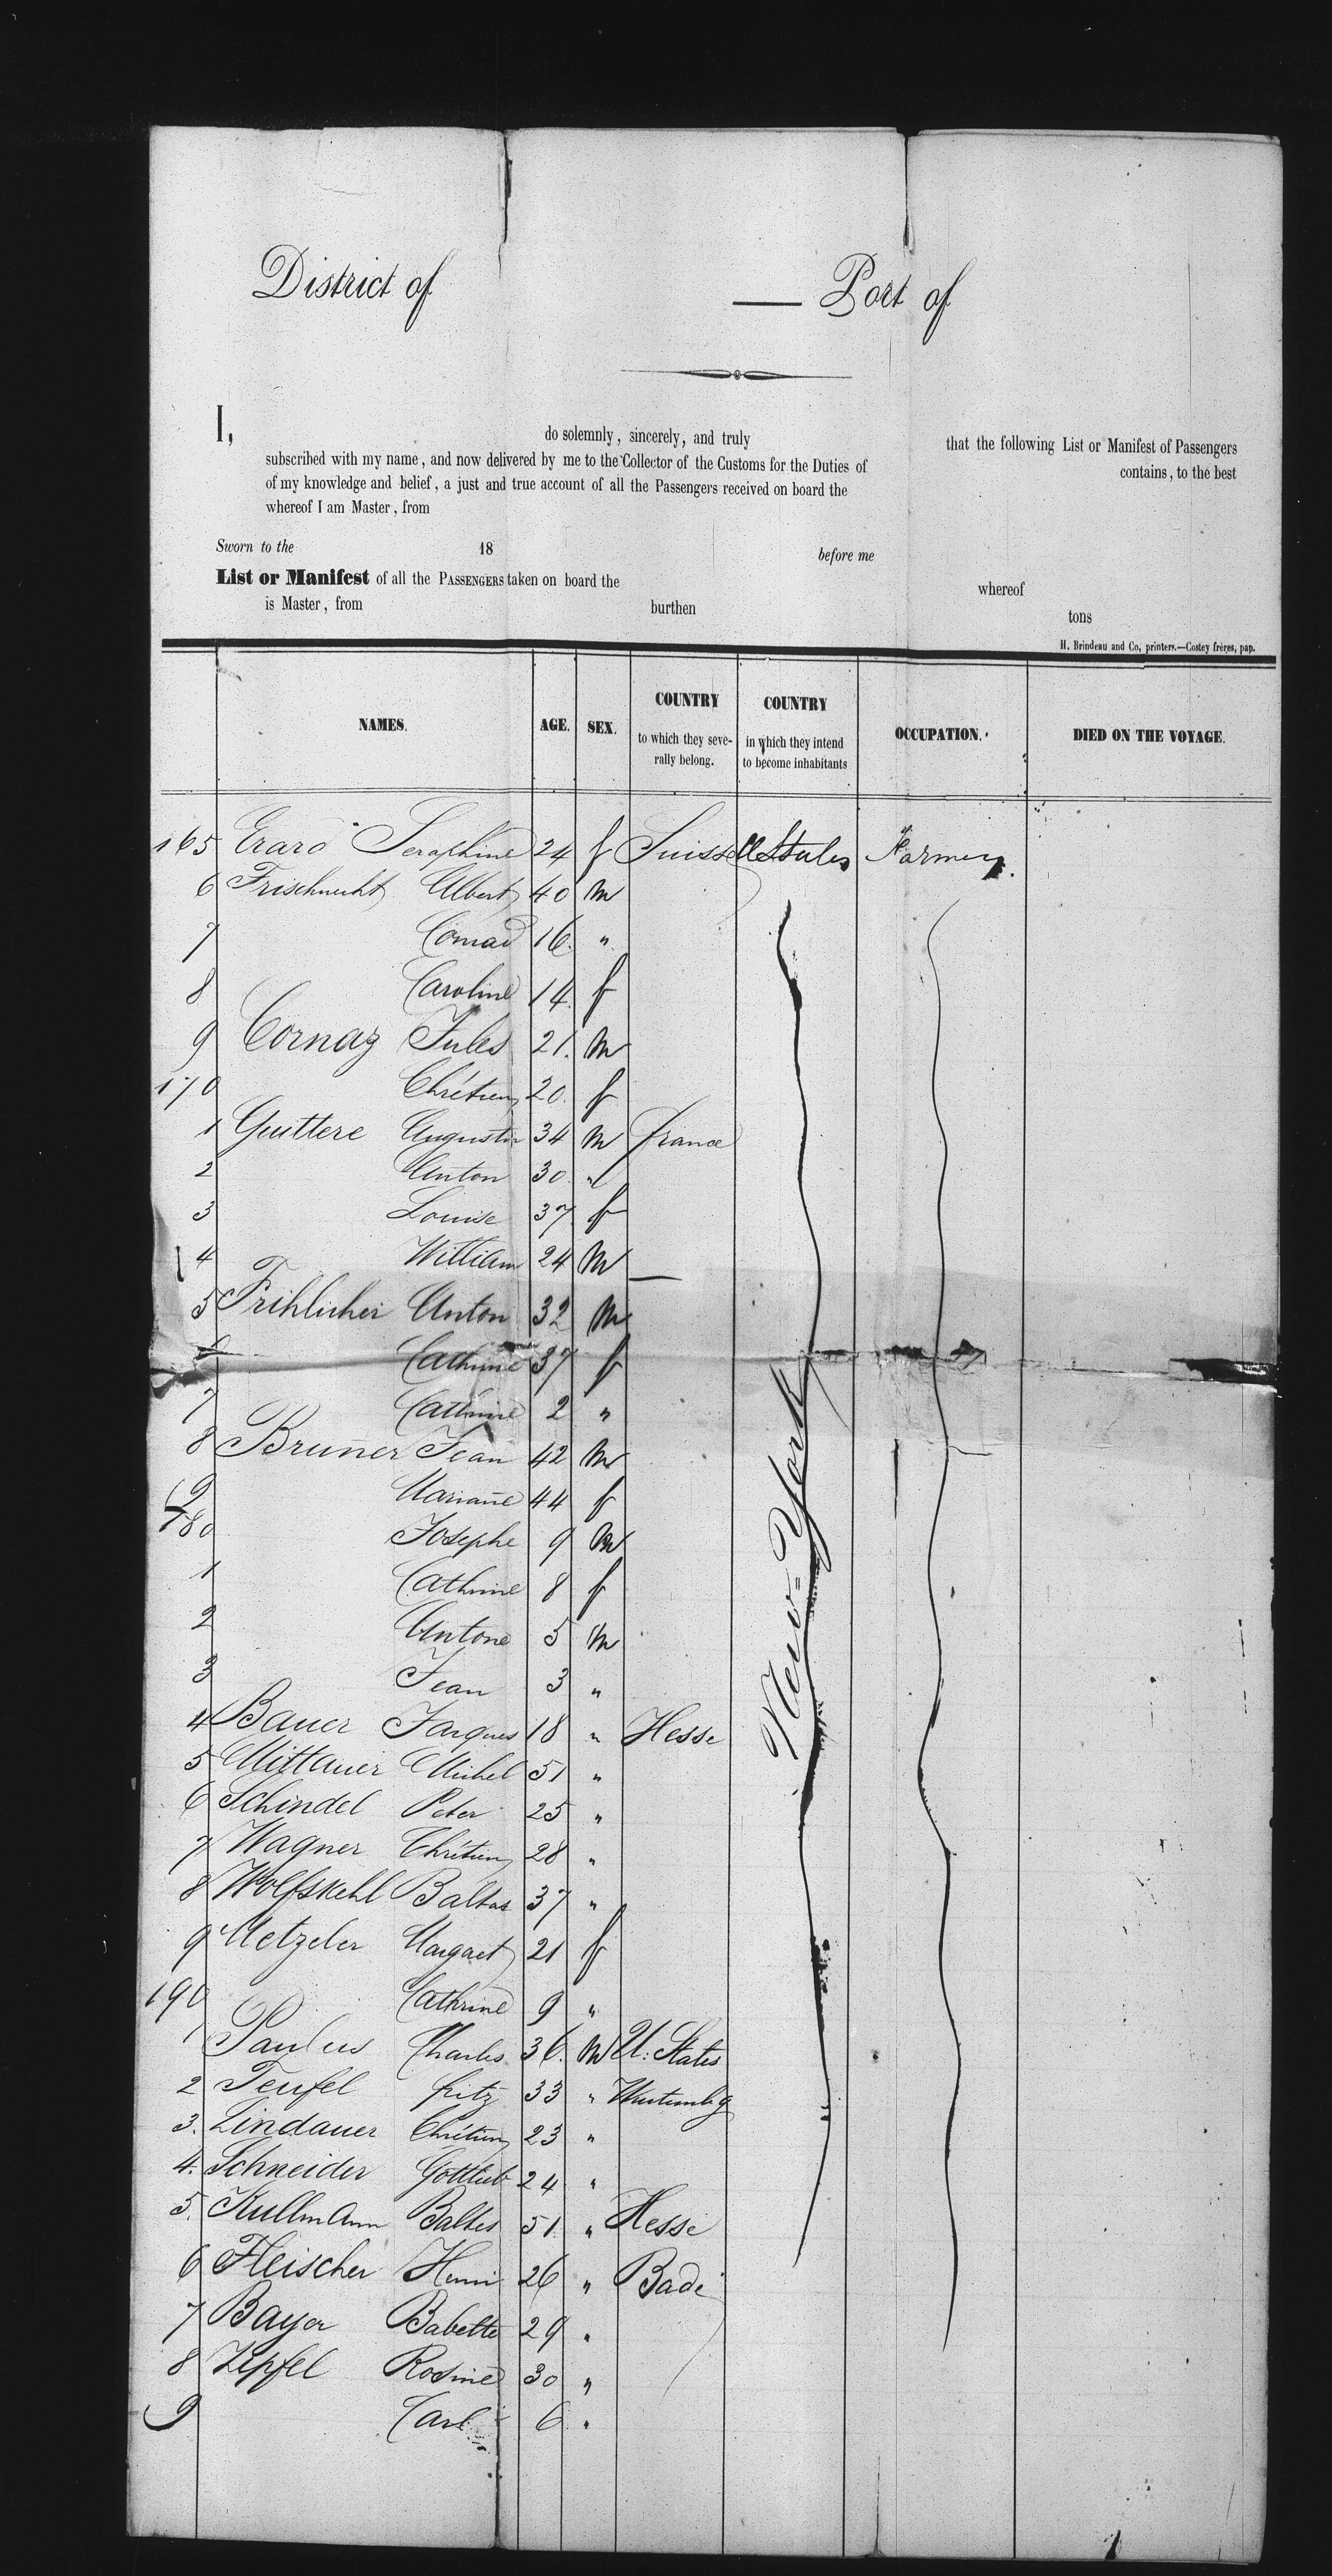 District of — Port of
I, do solemnly, sincerely, and truly that the following List or Manifest of Passengers
subscribed with my name, and now delivered by me to the Collector of the Customs for the Duties of contains, to the best
of my knowledge and belief, a just and true account of all the Passengers received on board the
whereof I am Master, from
Sworn to the 18 before me
List or Manifest of all the PASSENGERS taken on board the whereof
is Master, from burthen tons
H. Brindeau and Co, printers.—Costey frères, pap.
NAMES. AGE. SEX. COUNTRY to which they seve-rally belong. COUNTRY in which they intend to become inhabitants OCCUPATION. DIED ON THE VOYAGE.
165 Erard Seraphine 24 f Suisse UStates Farmer.
6 Frischnecht Albert 40 m
7 Conrad 16. "
8 Caroline 14. f
9 Cornaz Jules 21. m
170 Chrétien 20. f
1 Guittere Augustin 34 m france
2 Anton 30 "
3 Louise 37 f
4 William 24 m —
5 Frihlicher Anton 32 m
6 Cathrine 37 f
7 Cathrine 2 "
8 Bruñer Jean 42 m
9 Mariañe 44 f
180 Josephe 9 m
1 Cathrine 8 f
2 Antone 5 m
3 Jean 3 "
New=York
4 Bauer Jacques 18 " Hesse
5 Mittauer Michel 51 "
6 Schindel Peter 25 "
7 Wagner Chrétien 28 "
8 Wolfskehl Baltas 37 "
9 Metzeler Margaet 21 f
190 Cathrine 9 "
1 Paulus Charles 36. m U. States
2 Teufel fritz 33 " Wurtembg
3. Lindauer Chrétien 23 "
4. Schneider Gottlieb 24 "
5. Kullmann Baltes 51 " Hesse
6 Fleischer Henri 26 " Bade
7 Bayer Babette 29 "
8 Zepfel Rosine 30 "
9 Carl 6 "